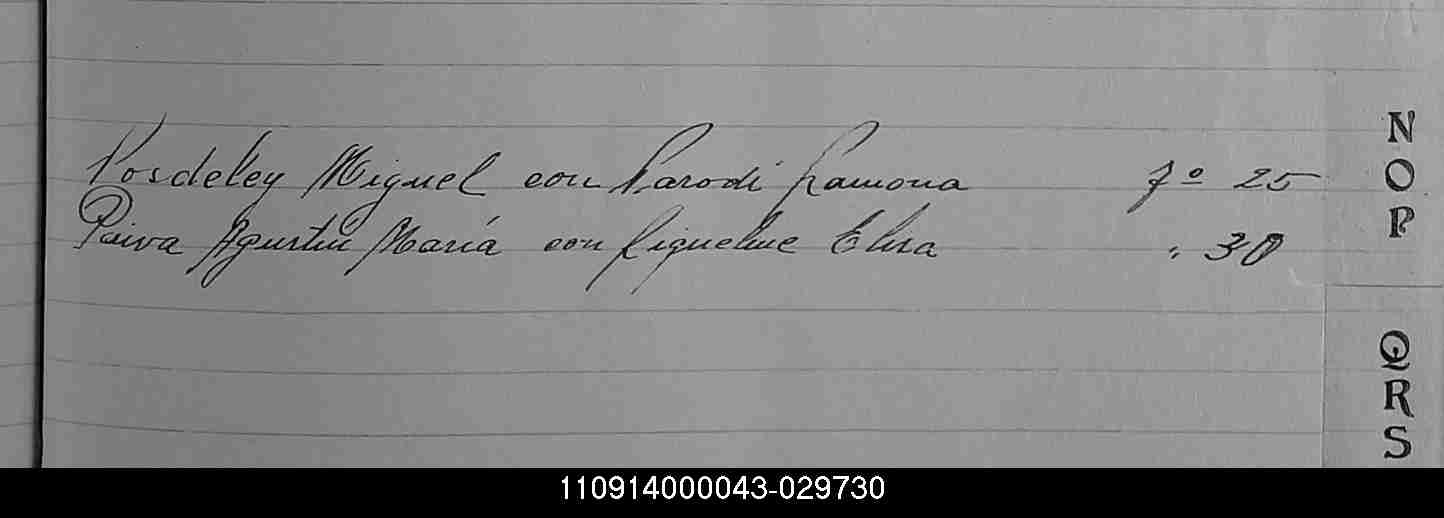 Posdeley Miguel con Parodi Ramona fº 25
Paiva Agustín María con Riquelme Elisa " 30
N
O
P
Q
R
S
110914000043-029730